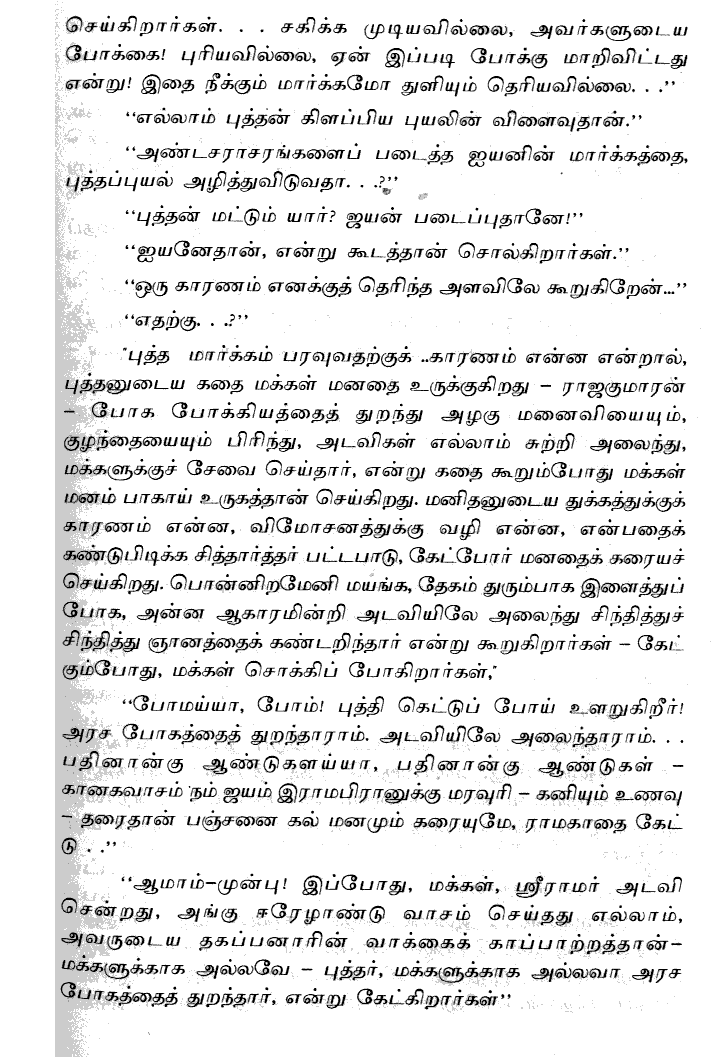 செய்கிறார்கள். . . சகிக்க முடியவில்லை, அவர்களுடைய
போக்கை! புரியவில்லை, ஏன் இப்படி போக்கு மாறிவிட்டது
என்று! இதை நீக்கும் மார்க்கமோ துளியும் தெரியவில்லை. . .''
''எல்லாம் புத்தன் கிளப்பிய புயலின் விளைவுதான்.''
''அண்டசராசரங்களைப் படைத்த ஐயனின் மார்க்கத்தை,
புத்தப்புயல் அழித்துவிடுவதா. . .?''
''புத்தன் மட்டும் யார்? ஐயன் படைப்புதானே!''
''ஐயனேதான், என்று கூடத்தான் சொல்கிறார்கள்.''
''ஒரு காரணம் எனக்குத் தெரிந்த அளவிலே கூறுகிறேன்...''
''எதற்கு. . .?''
"புத்த மார்க்கம் பரவுவதற்குக் ..காரணம் என்ன என்றால்,
புத்தனுடைய கதை மக்கள் மனதை உருக்குகிறது – ராஜகுமாரன்
– போக போக்கியத்தைத் துறந்து அழகு மனைவியையும்,
குழந்தையையும் பிரிந்து, அடவிகள் எல்லாம் சுற்றி அலைந்து,
மக்களுக்குச் சேவை செய்தார், என்று கதை கூறும்போது மக்கள்
மனம் பாகாய் உருகத்தான் செய்கிறது. மனிதனுடைய துக்கத்துக்குக்
காரணம் என்ன, விமோசனத்துக்கு வழி என்ன, என்பதைக்
கண்டுபிடிக்க சித்தார்த்தர் பட்டபாடு, கேட்போர் மனதைக் கரையச்
செய்கிறது. பொன்னிறமேனி மயங்க, தேகம் துரும்பாக இளைத்துப்
போக, அன்ன ஆகாரமின்றி அடவியிலே அலைந்து சிந்தித்துச்
சிந்தித்து ஞானத்தைக் கண்டறிந்தார் என்று கூறுகிறார்கள் – கேட்
கும்போது, மக்கள் சொக்கிப் போகிறார்கள்,"
''போமய்யா, போம்! புத்தி கெட்டுப் போய் உளறுகிறீர்!
அரச போகத்தைத் துறந்தாராம். அடவியிலே அலைந்தாராம். . .
பதினான்கு ஆண்டுகளய்யா, பதினான்கு ஆண்டுகள் –
கானகவாசம் நம் ஜயம் இராமபிரானுக்கு மரவுரி – கனியும் உணவு
– தரைதான் பஞ்சனை கல் மனமும் கரையுமே, ராமகாதை கேட்
டு . .''
''ஆமாம்–முன்பு! இப்போது, மக்கள், ஸ்ரீராமர் அடவி
சென்றது, அங்கு ஈரேழாண்டு வாசம் செய்தது எல்லாம்,
அவருடைய தகப்பனாரின் வாக்கைக் காப்பாற்றத்தான்–
மக்களுக்காக அல்லவே – புத்தர், மக்களுக்காக அல்லவா அரச
போகத்தைத் துறந்தார், என்று கேட்கிறார்கள்''